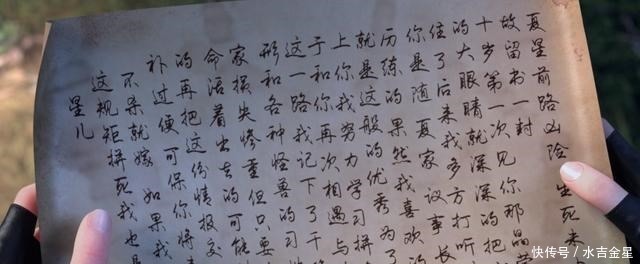 夏星前路凶险生死未
故留书一封
十岁第一次见你的那
的大眼睛就深深的把
住了后来我多方打听
你是随夏家议事长
历练的果然我喜欢
就是这般优秀为
上你我努力学习拼
于和你再次相遇了与
这一路我记下了
形和各种怪兽只要
家损失惨重但可能
命活着出去的
的再把这份情报交
补过便可保你将
不杀就嫁如果我
这规矩拼死我也
星儿
快传号/水吉金星